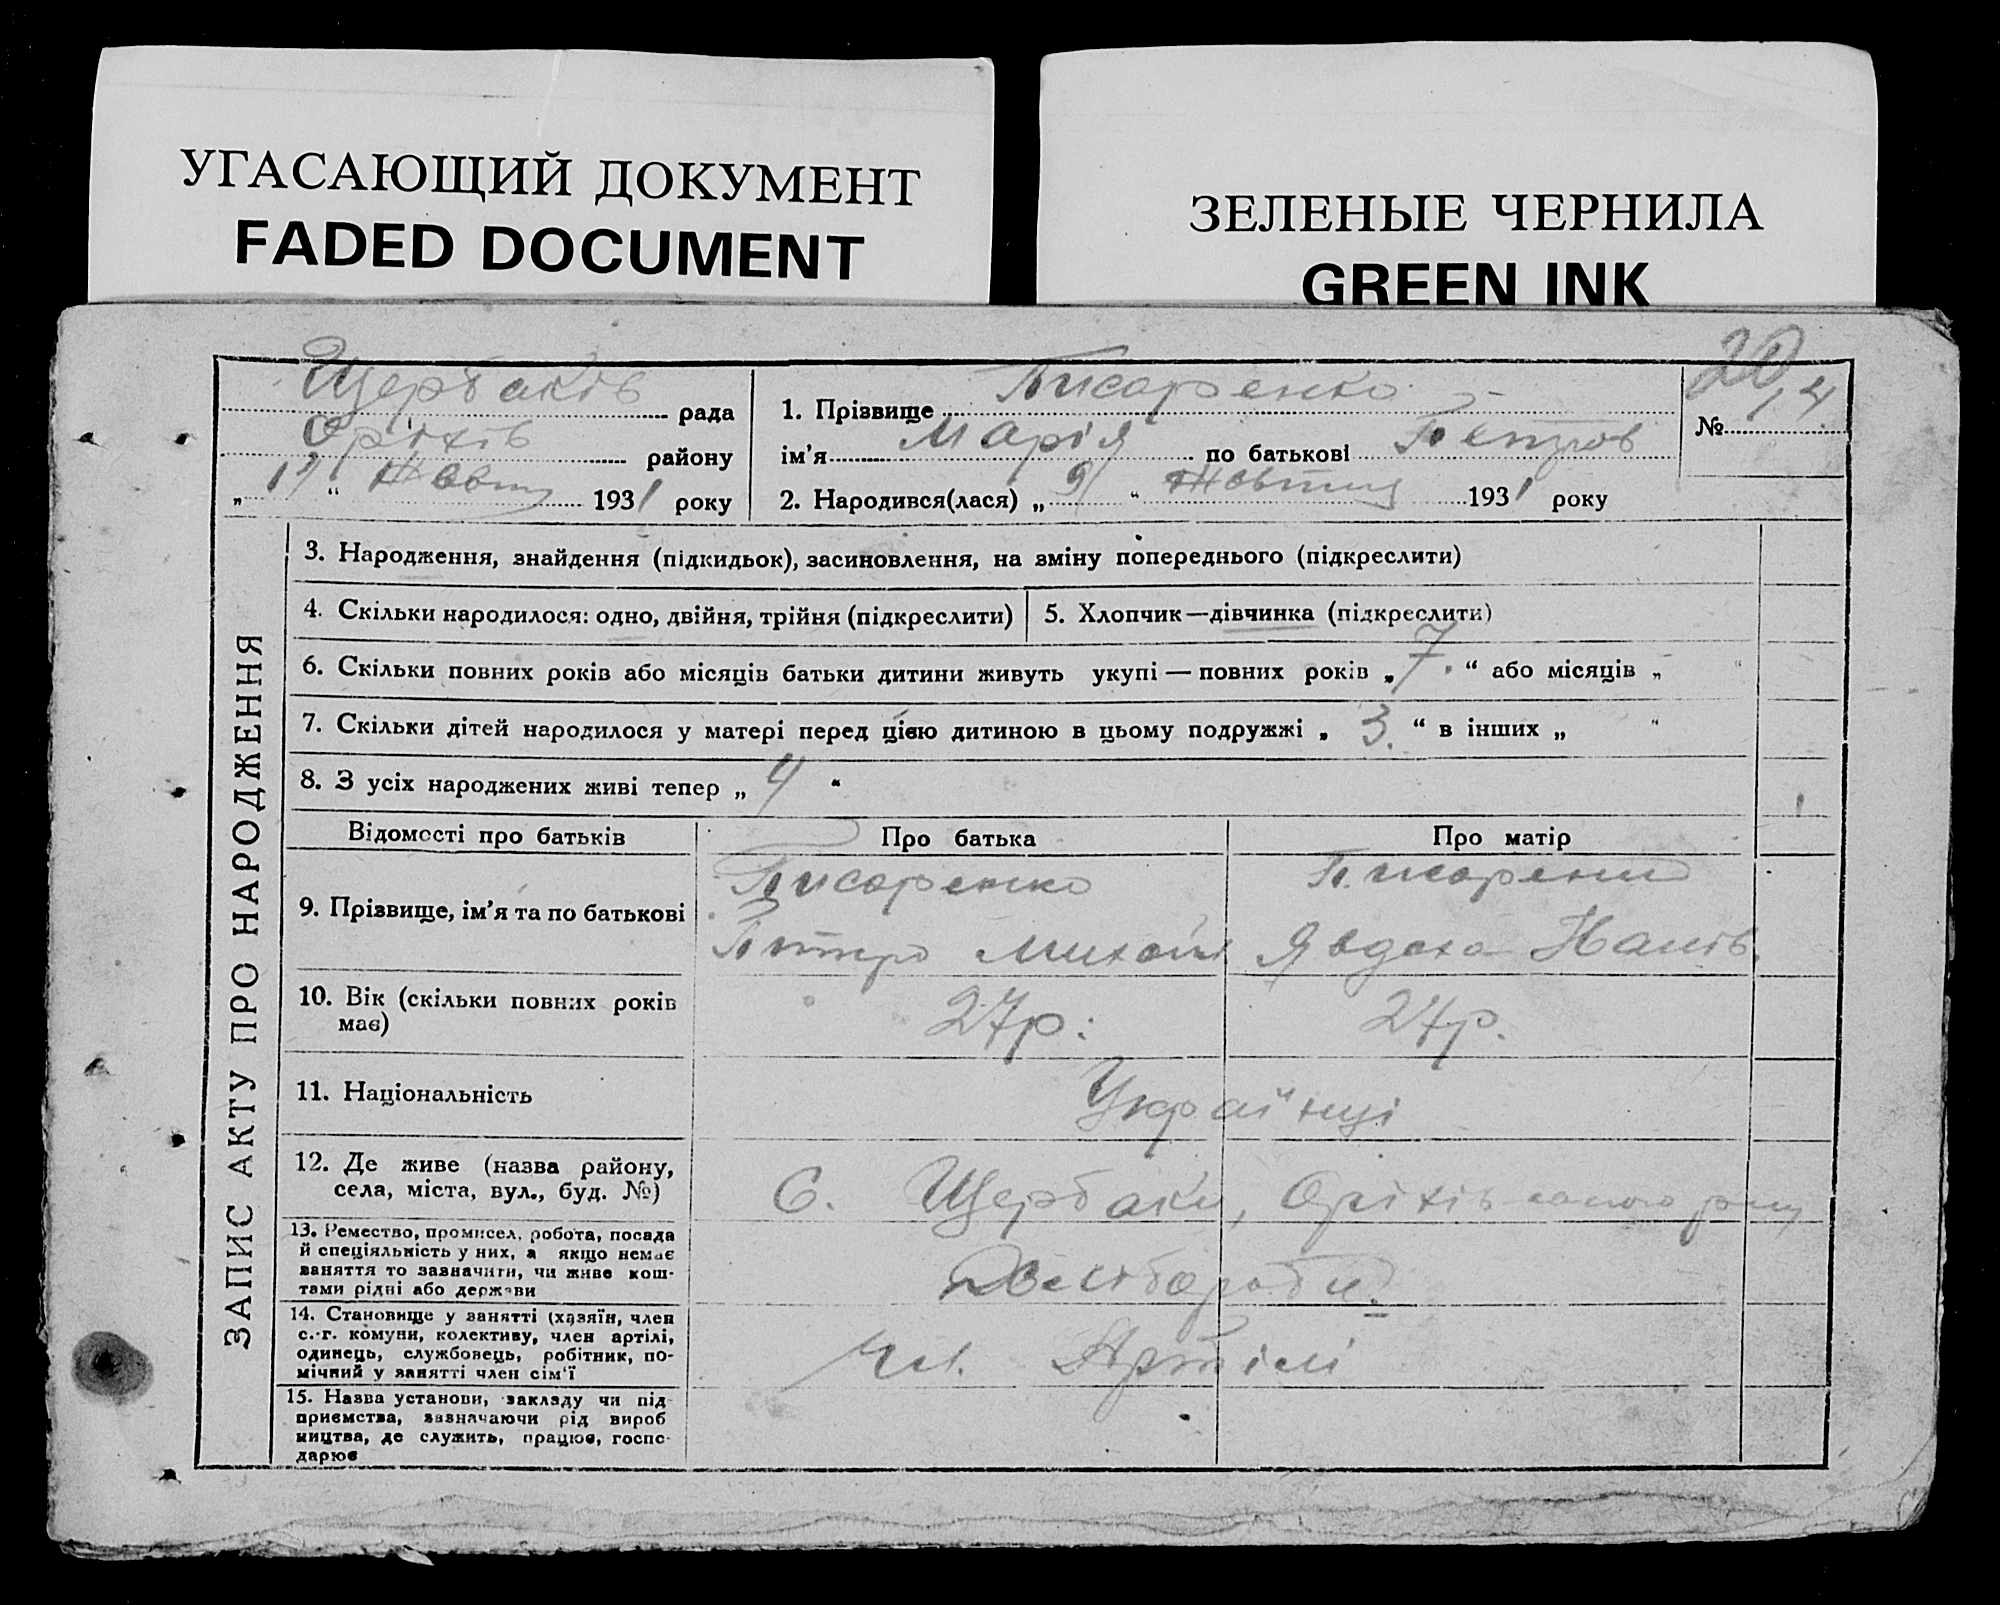 УГАСАЮЩИЙ ДОКУМЕНТ
FADED DOCUMENT
ЗЕЛЕНЫЕ ЧЕРНИЛА
GREEN INK
20
Щербаків рада
Оріхів району
„ “ Жовтня 1931 року
1. Прізвище Писаренко
ім’я Марія по батькові Петров
2. Народився(лася) „ 9 “ Жовтня 1931 року
№ 14
ЗАПИС АКТУ ПРО НАРОДЖЕННЯ
3. Народження, знайдення (підкидьок), засиновлення, на зміну попереднього (підкреслити)
4. Скільки народилося: одно, двійня, трійня (підкреслити)
5. Хлопчик—дівчинка (підкреслити)
6. Скільки повних років або місяців батьки дитини живуть укупі — повних років „ 7. “ або місяців „ “
7. Скільки дітей народилося у матері перед цією дитиною в цьому подружжі „ 3. “ в інших „ “
8. З усіх народжених живі тепер „ 4 “
Відомості про батьків
Про батька
Про матір
9. Прізвище, ім’я та по батькові
Писаренко
Петро Михайл
Писаренко
Явдоха Іванів.
10. Вік (скільки повних років
має)
27р.
27р.
11. Національність
Українці
12. Де живе (назва району,
села, міста, вул., буд. №)
С. Щербаки, Оріхівського р-ну
13. Ремество, промисел, робота, посада
й спеціяльність у них, а якщо немає
заняття то зазначити, чи живе кош-
тами рідні або держави
Хлібороби
14. Становище у занятті (хазяїн, член
с.-г. комуни, колективу, член артілі,
одинець, службовець, робітник, по-
мічний у занятті член сім’ї
Чл. Артілі
15. Назва установи, закладу чи під
приємства, зазначаючи рід вироб
ництва, де служить, працює, госпо-
дарює